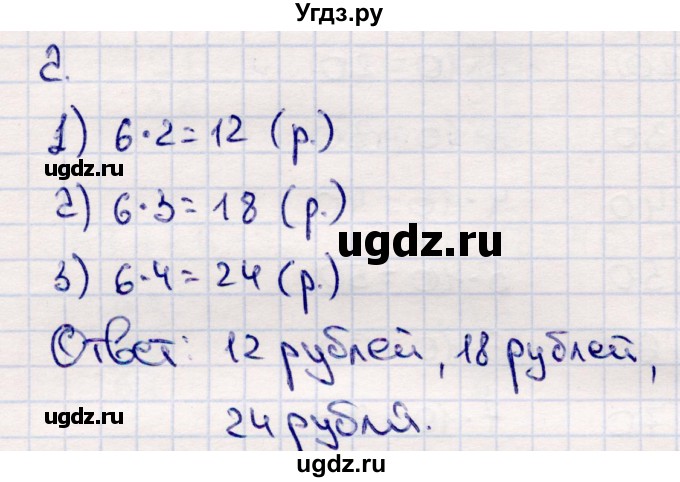 Угдз.ру
2.
1) 6·2=12 (р.)
ugdz.ru
2) 6·3=18 (р.)
ugdz.ru
3) 6·4=24 (р.)
Ответ: 12 рублей, 18 рублей,
ugdz.ru
24 рубля.
ugdz.ru